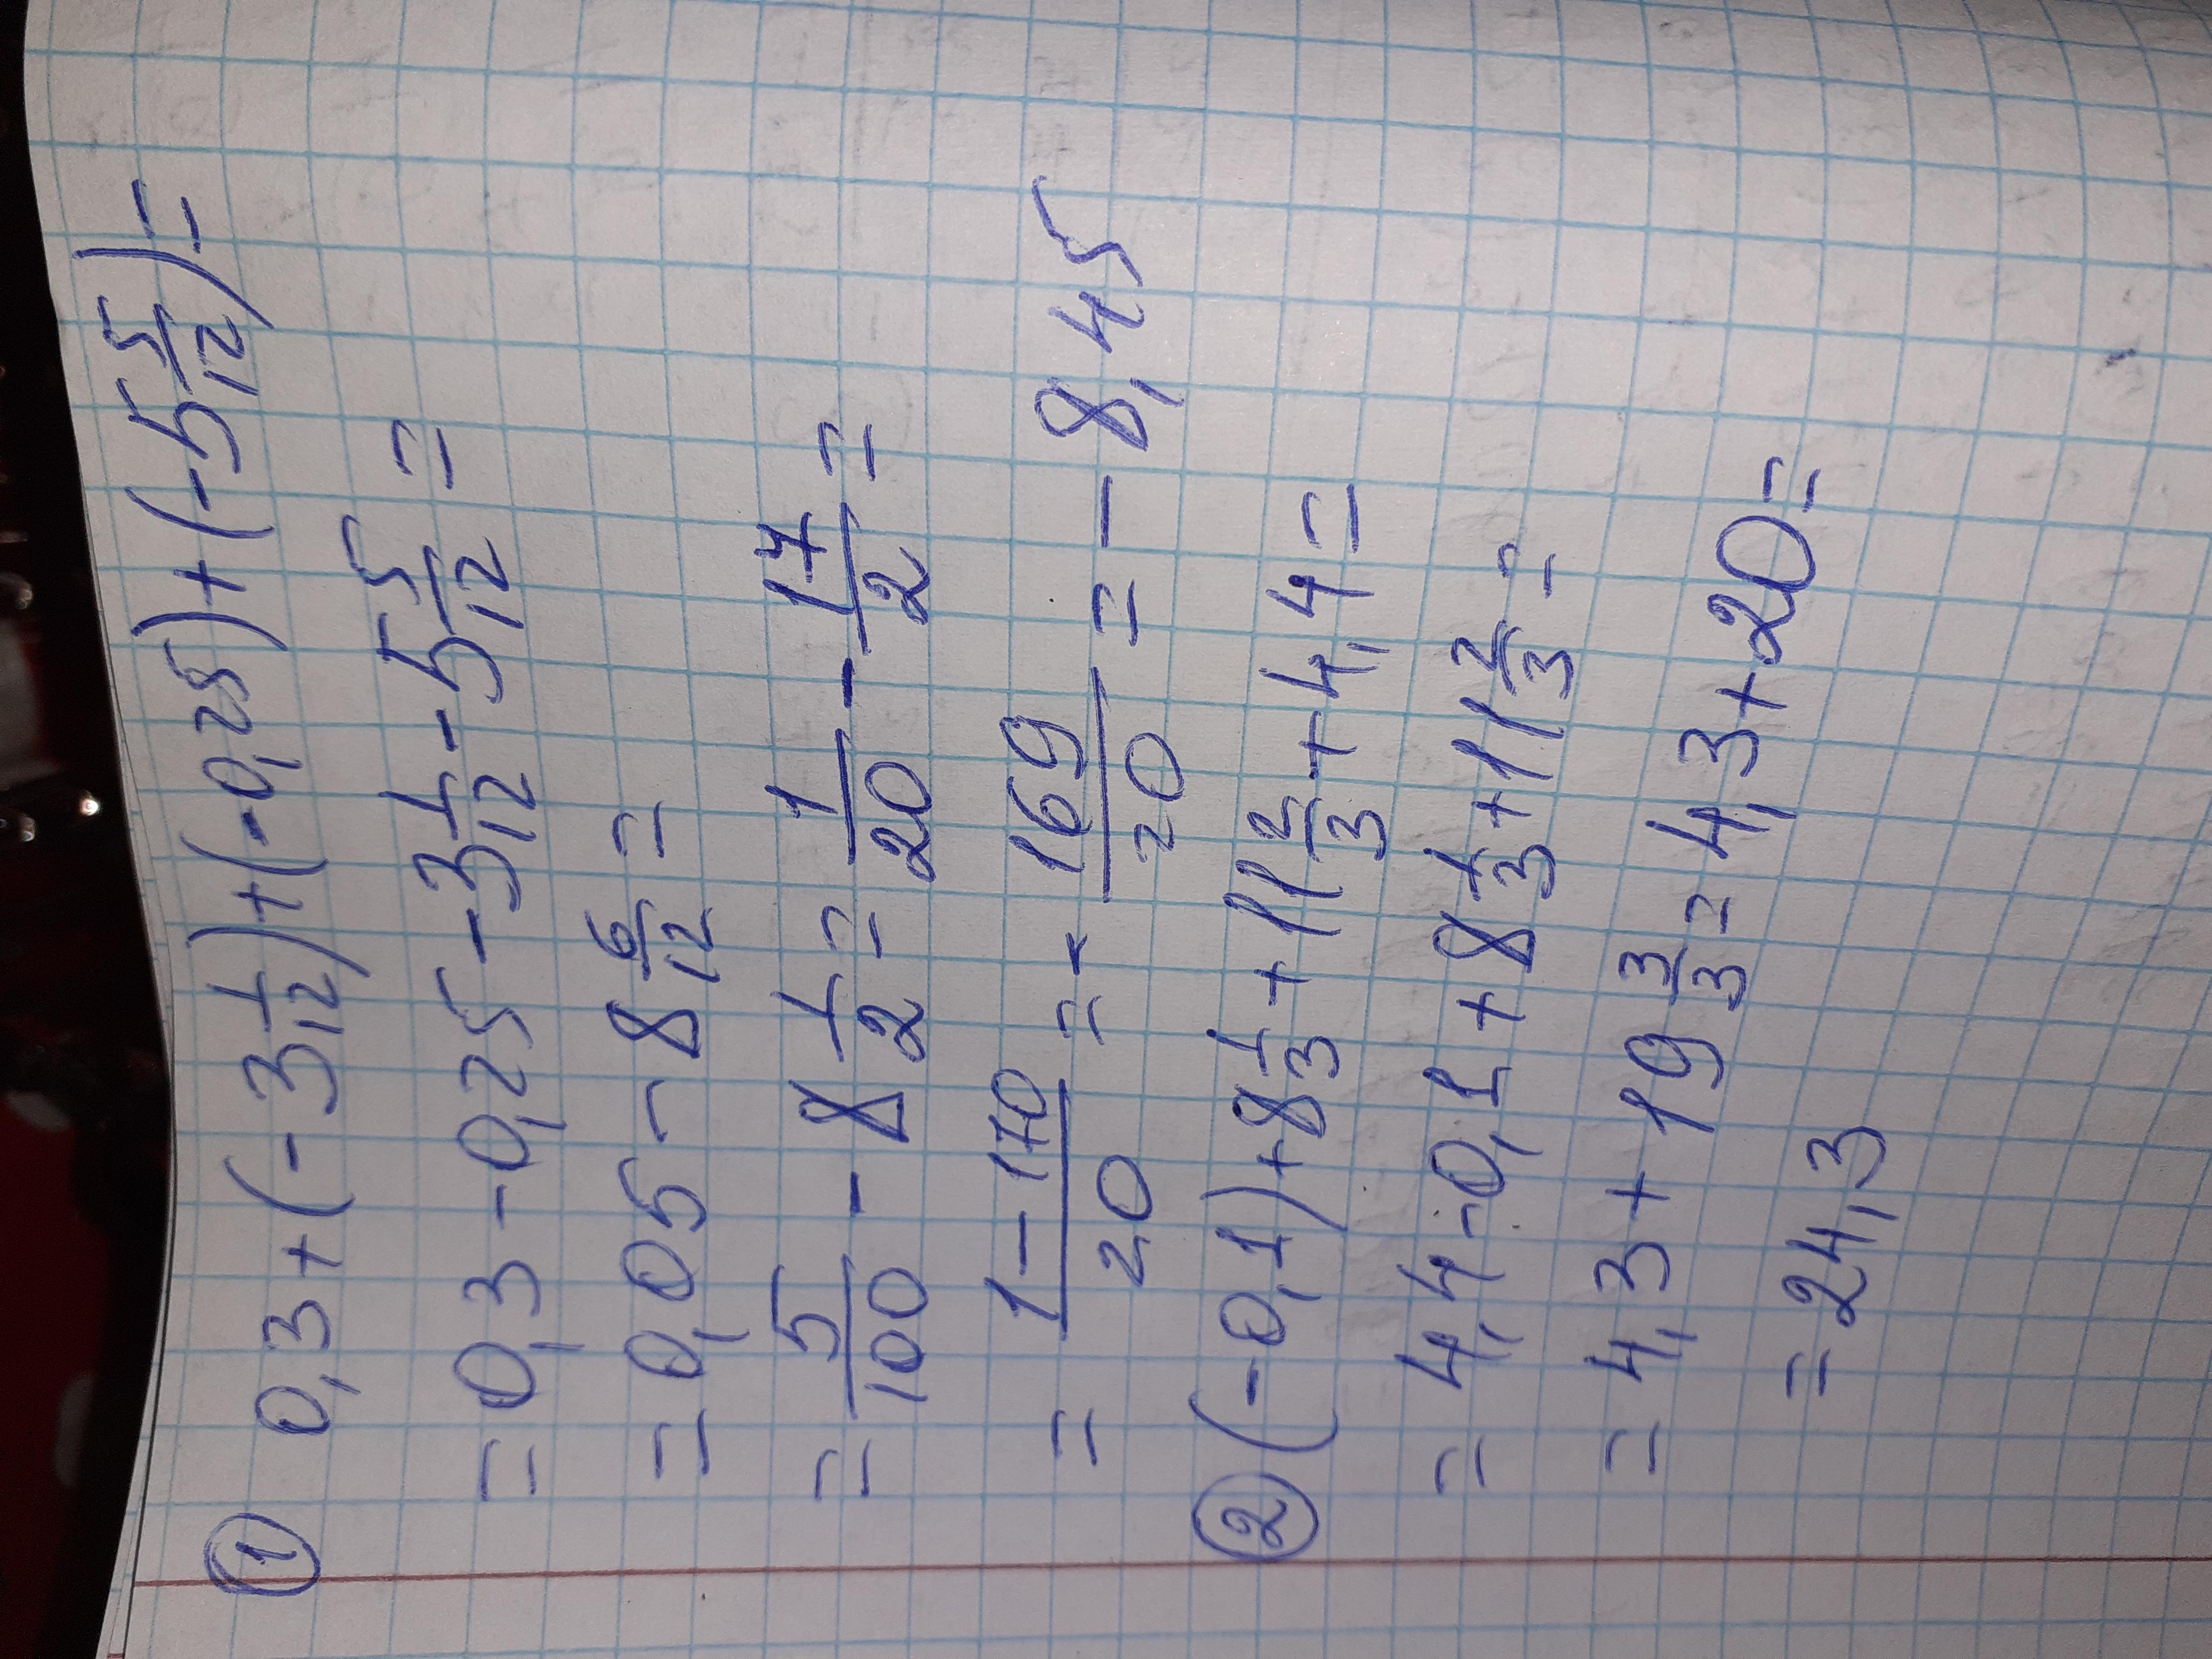 ① 0,3+(-3 1/12)+(-0,25)+(-5 5/12)=
=0,3-0,25-3 1/12-5 5/12=
=0,05-8 6/12=
=5/100-8 1/2=1/20-17/2=
=(1-170)/20=-169/20=-8,45
②(-0,1)+8 1/3+11 2/3+4,4=
=4,4-0,1+8 1/3+11 2/3=
=4,3+19 3/3=4,3+20=
=24,3